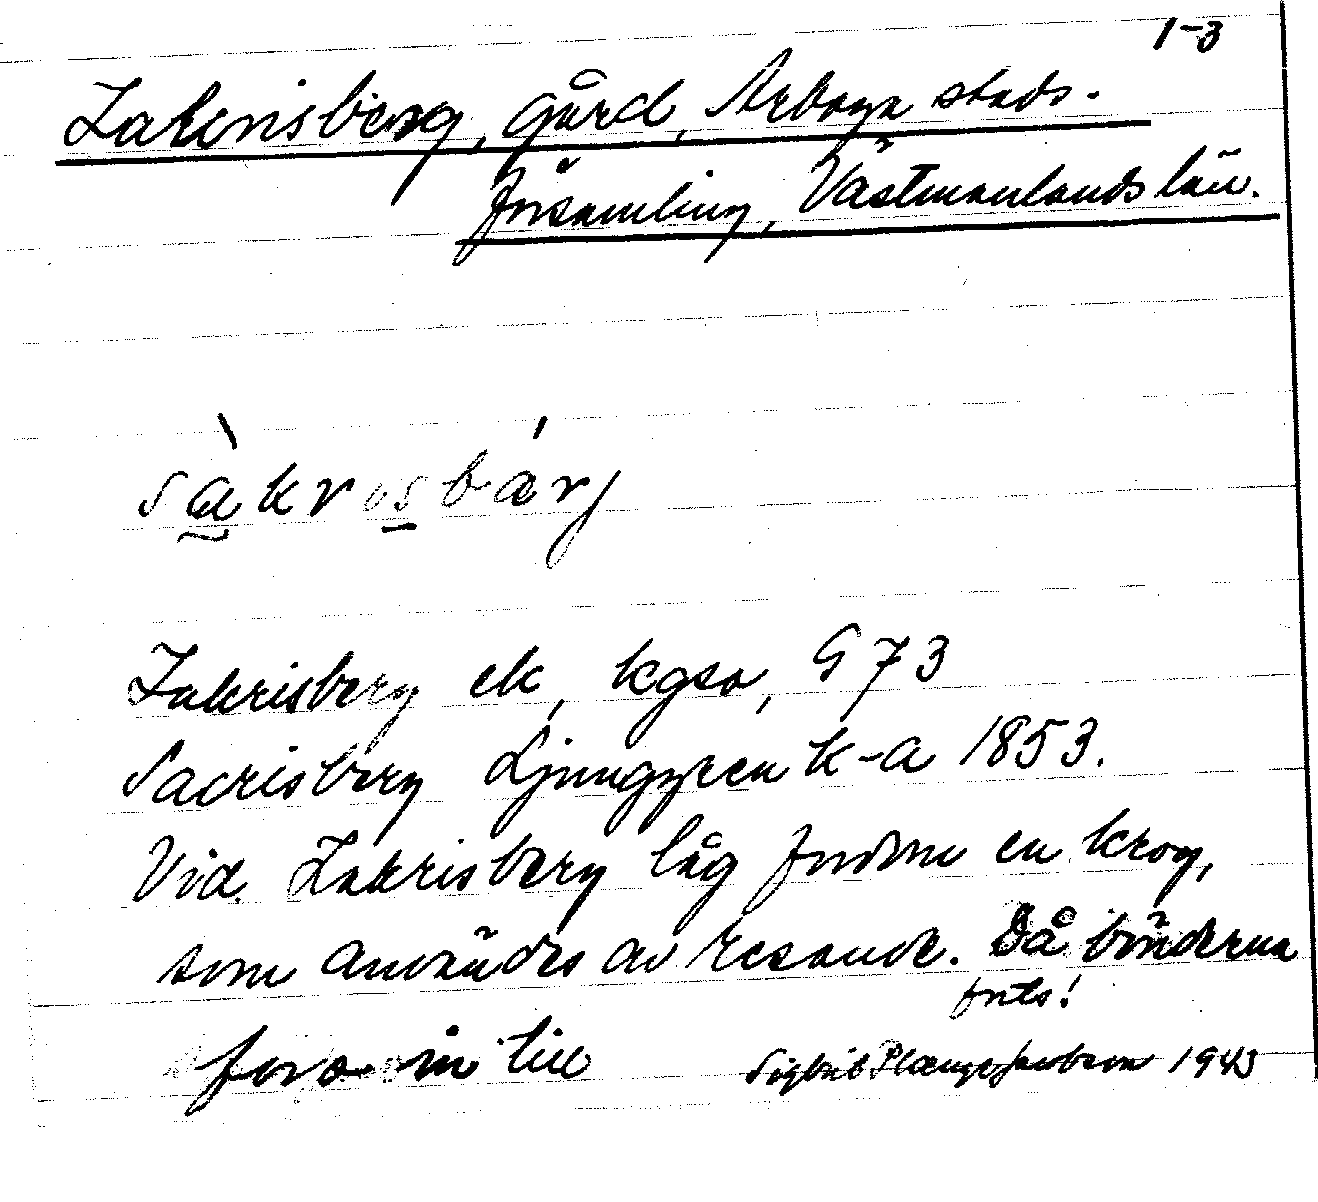 1-3
Zakrisberg, gård, Arboga stads-
församling, Västmanlands län.
sàkrisbárj
Zakrisberg ek, kgsa, G 73
Sacrisberg Ljunggren k-a 1853.
Vid Zakrisberg låg fordom en krog,
som användes av resande. Då bönderna
forts!
foro in till
Sigbrit Plænge Jacobson 1943